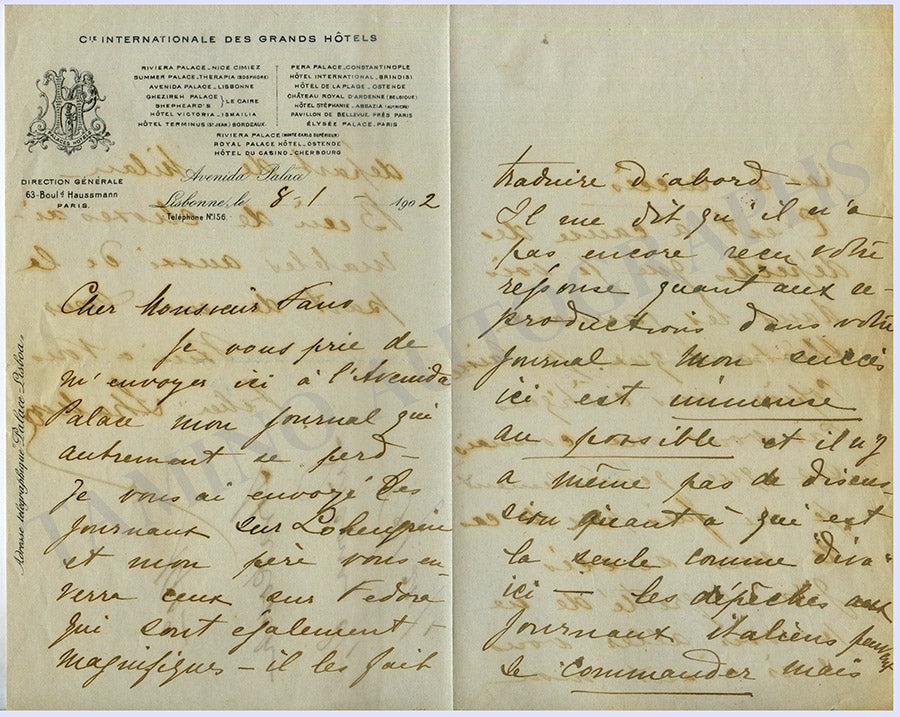 Cie INTERNATIONALE DES GRANDS HÔTELS
RIVIERA PALACE_NICE CIMIEZ
SUMMER PALACE_THERAPIA (BOSPHORE)
AVENIDA PALACE_LISBONNE
GHEZIREH PALACE
SHEPHEARD'S } LE CAIRE
HÔTEL VICTORIA_ISMAILIA
HÔTEL TERMINUS (ST JEAN) BORDEAUX
PERA PALACE_CONSTANTINOPLE
HÔTEL INTERNATIONAL_BRINDISI
HÔTEL DE LA PLAGE_OSTENDE
CHÂTEAU ROYAL D'ARDENNE (BELGIQUE)
HÔTEL STÉPHANIE_ABBAZIA (AUTRICHE)
PAVILLON DE BELLEVUE PRÈS PARIS
ÉLYSÉE PALACE_PARIS
RIVIERA PALACE (MONTE CARLO SUPÉRIEUR)
ROYAL PALACE HÔTEL_OSTENDE
HÔTEL DU CASINO_CHERBOURG
PALACES HOTELS
DIRECTION GÉNÉRALE
63-Bould Haussmann
PARIS.
Avenida Palace
Lisbonne, le 8.1 - 1902
Téléphone No 156.
Adresse télégraphique Palace-Lisboa
Cher Monsieur Fano
Je vous prie de
m'envoyer ici à l'Avenida
Palace mon journal qui
autrement se perd -
Je vous ai envoyé des
journaux sur Lohengrin
et mon père vous en-
verra ceux sur Fedora
qui sont également
magnifiques - il les fait
traduire d'abord -
Il me dit qu'il n'a
pas encore reçu votre
réponse quant aux re-
productions dans votre
journal - Mon succès
ici est immense
au possible et il n'y
a même pas de discus-
sion quant à qui est
la seule comme diva
ici - les dépêches aux
journaux italiens peuvent
se commander mais
TAMINO AUTOGRAPHS